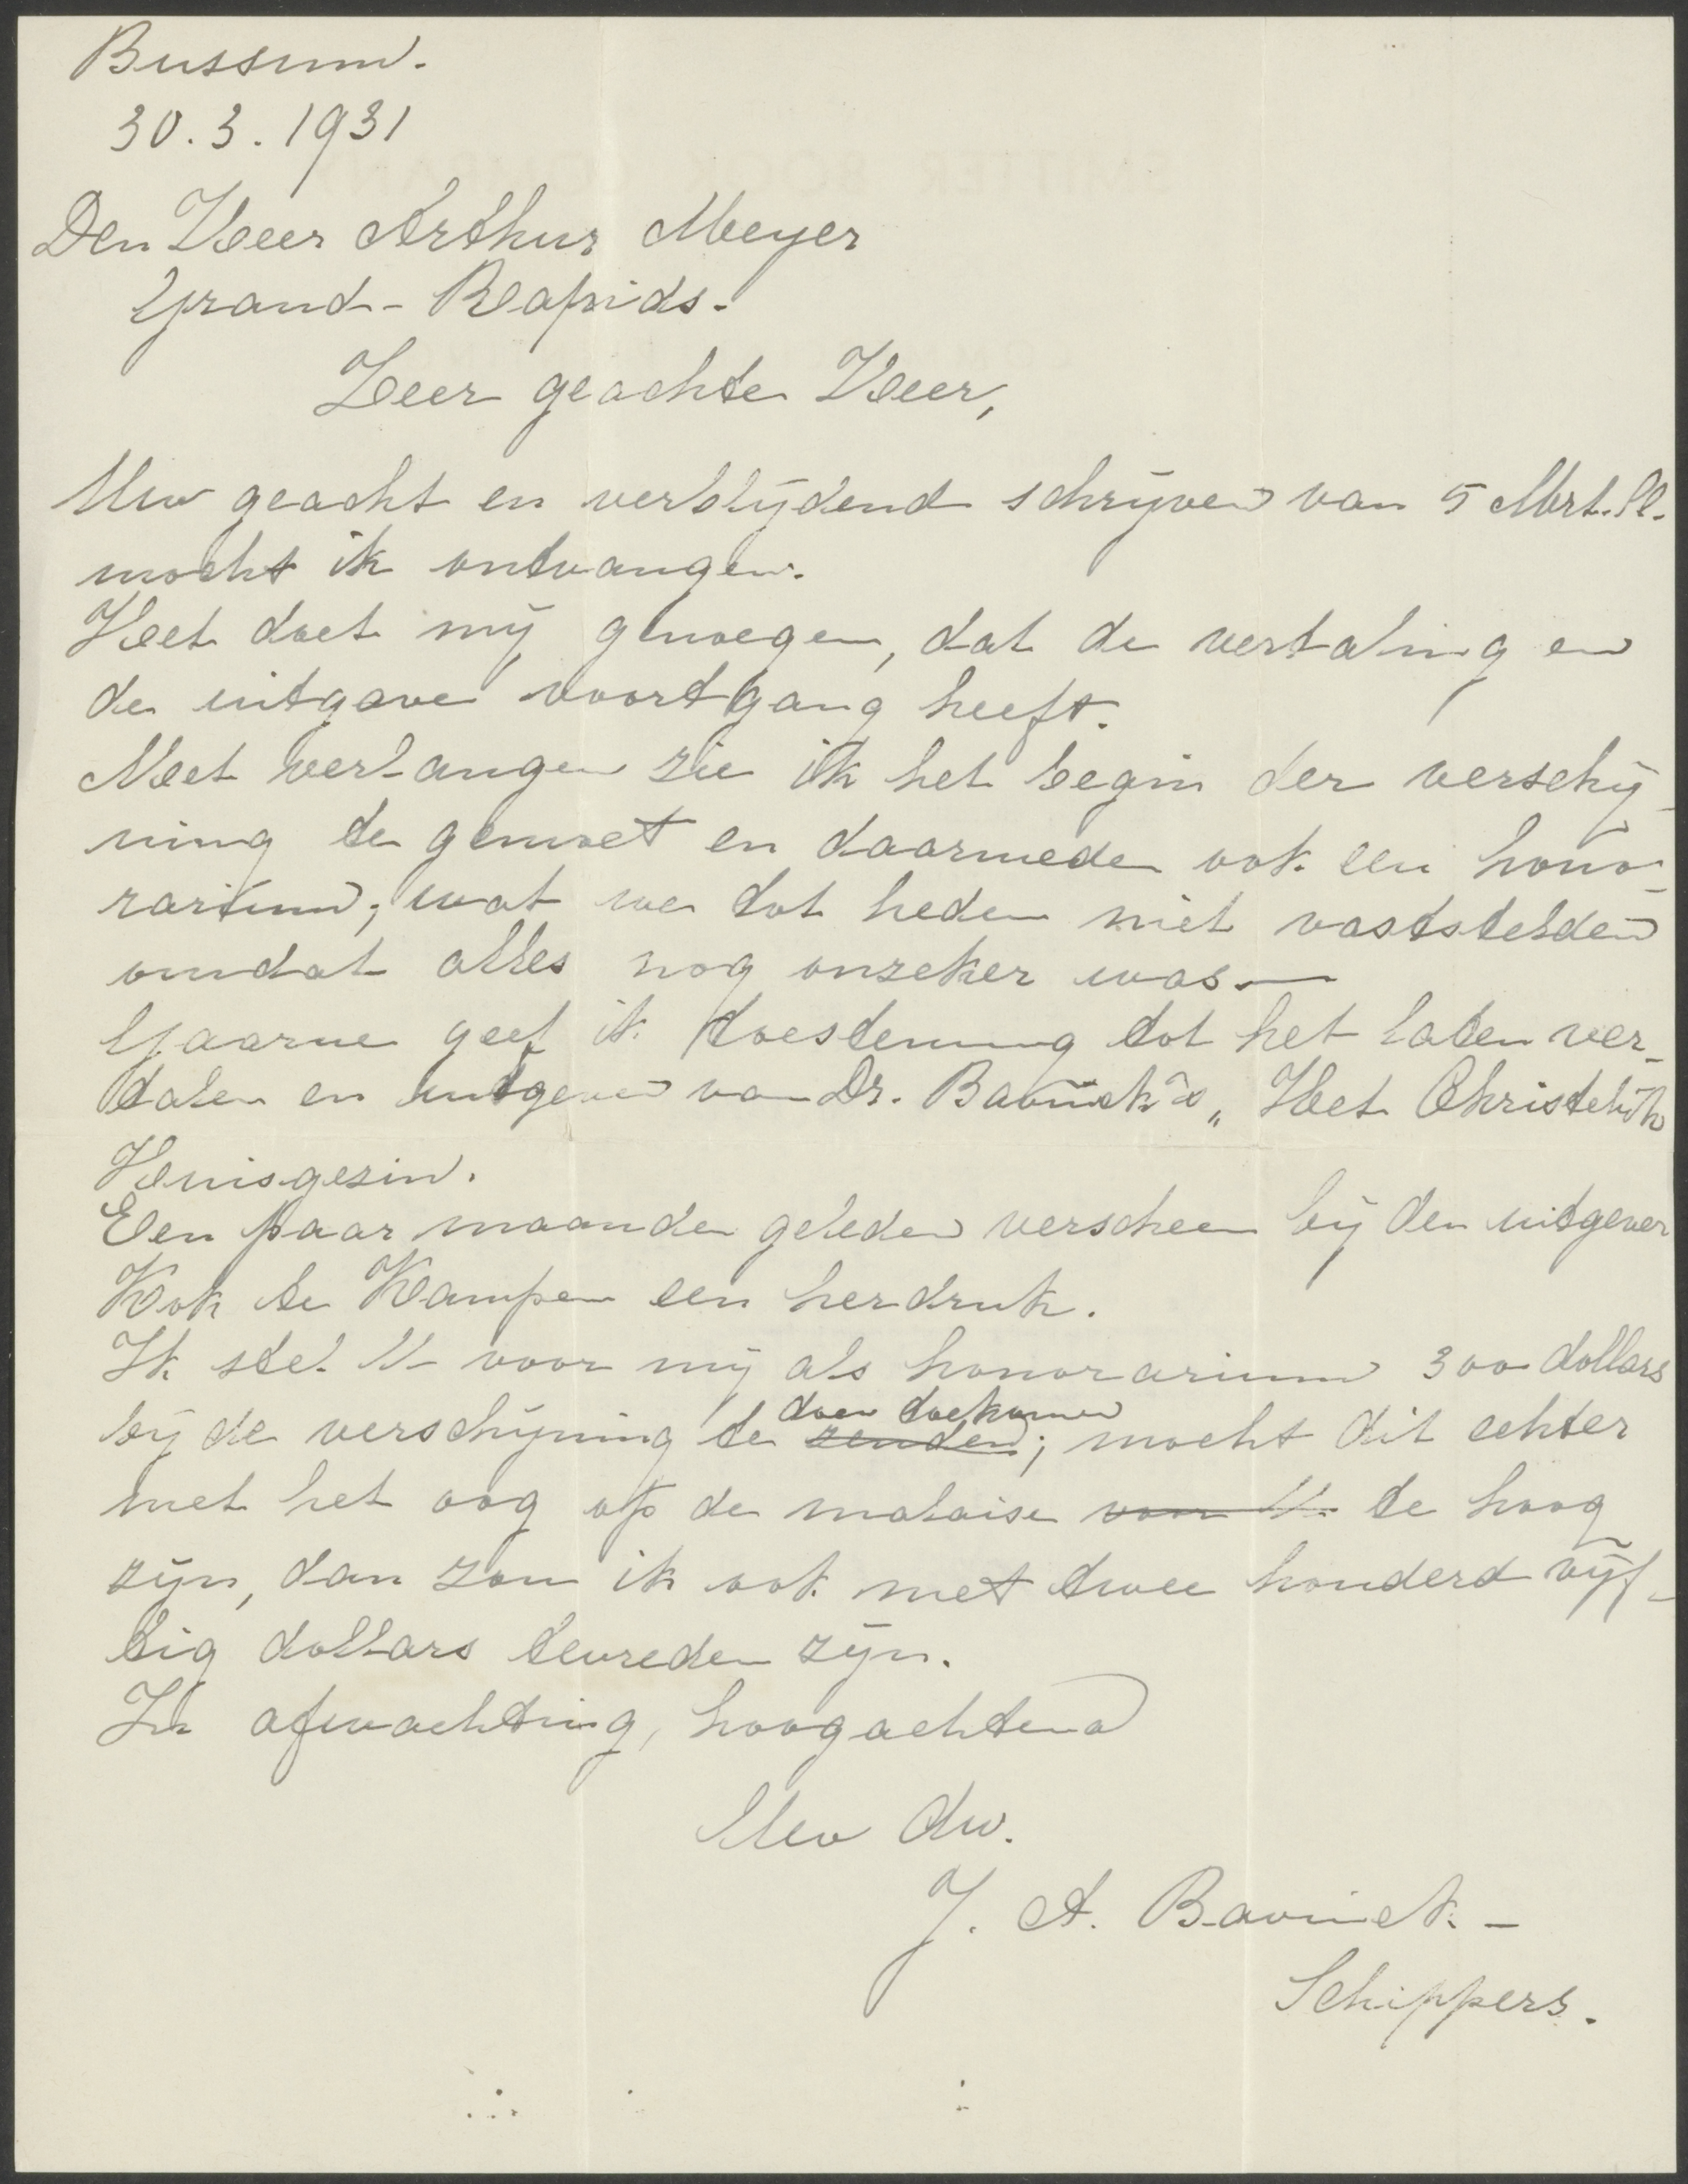 Bussum.
30.3.1931
Den Heer Arthur Meyer
Grand-Rapids.
Zeer geachte Heer,
Uw geacht en verblijdend schrijven van 5 Mrt. ll.
mocht ik ontvangen.
Het doet mij genoegen, dat de vertaling en
de uitgave voortgang heeft.
Met verlangen zie ik het begin der verschij-
ning te gemoet en daarmede ook een hono-
rarium; wat we tot heden niet vaststelden
omdat alles nog onzeker was. —
Gaarne geef ik toestemming tot het laten ver-
talen en uitgeven van Dr. Bavinck's „Het Christelijk
Huisgezin.
Een paar maanden geleden verscheen bij den uitgever
Kok te Kampen een herdruk.
Ik stel U voor mij als honorarium 300 dollars
bij de verschijning te zenden doen toekomen; mocht dit echter
met het oog op de malaise voor U te hoog
zijn, dan zou ik ook met twee honderd vijf-
tig dollars tevreden zijn.
In afwachting, hoogachtend
Uw dw.
J. A. Bavinck. -
Schippers.